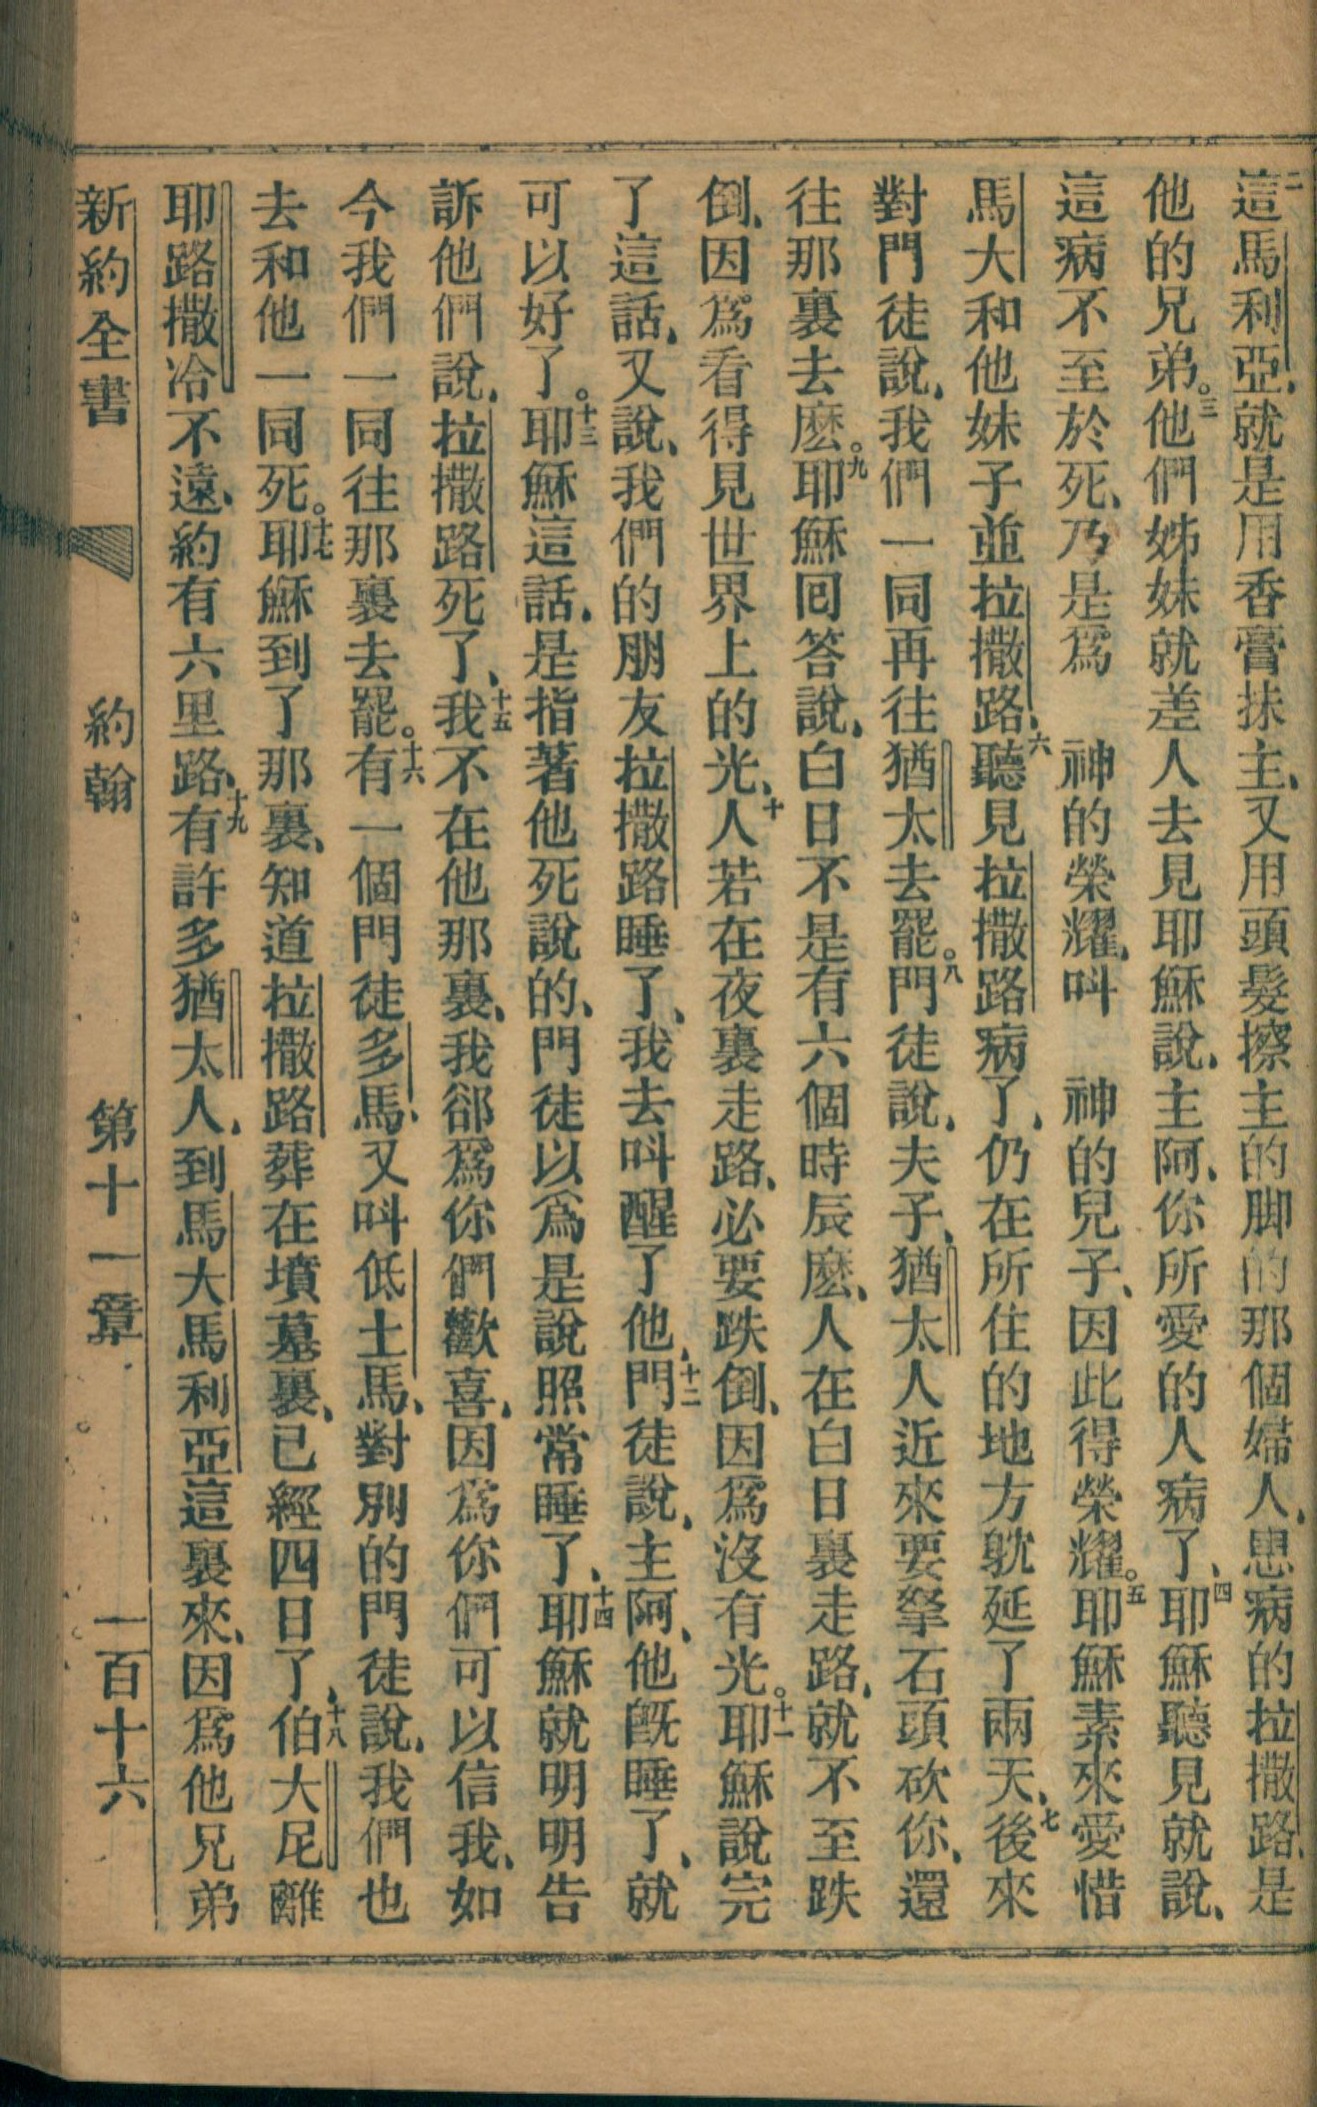 二這馬利亞、就是用香膏抹主、又用頭髮擦主的脚的那個婦人、患病的拉撒路、是
他的兄弟。三他們姊妹就差人去見耶穌說、主阿、你所愛的人病了、四耶穌聽見就說、
這病不至於死、乃是爲　神的榮耀、呌　神的兒子、因此得榮耀。五耶穌素來愛惜
馬大和他妹子並拉撒路、六聽見拉撒路病了、仍在所住的地方躭延了兩天、七後來
對門徒說、我們一同再往猶太去罷。八門徒說、夫子、猶太人近來要拏石頭砍你、還
往那裏去麽。九耶穌回答說、白日不是有六個時辰麽、人在白日裏走路、就不至跌
倒、因爲看得見世界上的光、十人若在夜裏走路、必要跌倒、因爲沒有光。十一耶穌說完
了這話、又說、我們的朋友拉撒路睡了、我去呌醒了他、十二門徒說、主阿、他旣睡了、就
可以好了。十三耶穌這話、是指著他死說的、門徒以爲是說照常睡了、十四耶穌就明明告
訴他們說、拉撒路死了、十五我不在他那裏、我郤爲你們歡喜、因爲你們可以信我、如
今我們一同往那裏去罷。十六有一個門徒多馬、又呌低土馬、對別的門徒說、我們也
去和他一同死。十七耶穌到了那裏、知道拉撒路葬在墳墓裏、已經四日了、十八伯大尼離
耶路撒冷不遠、約有六里路、十九有許多猶太人、到馬大馬利亞這裏來、因爲他兄弟
新約全書　約翰　第十一章　一百十六